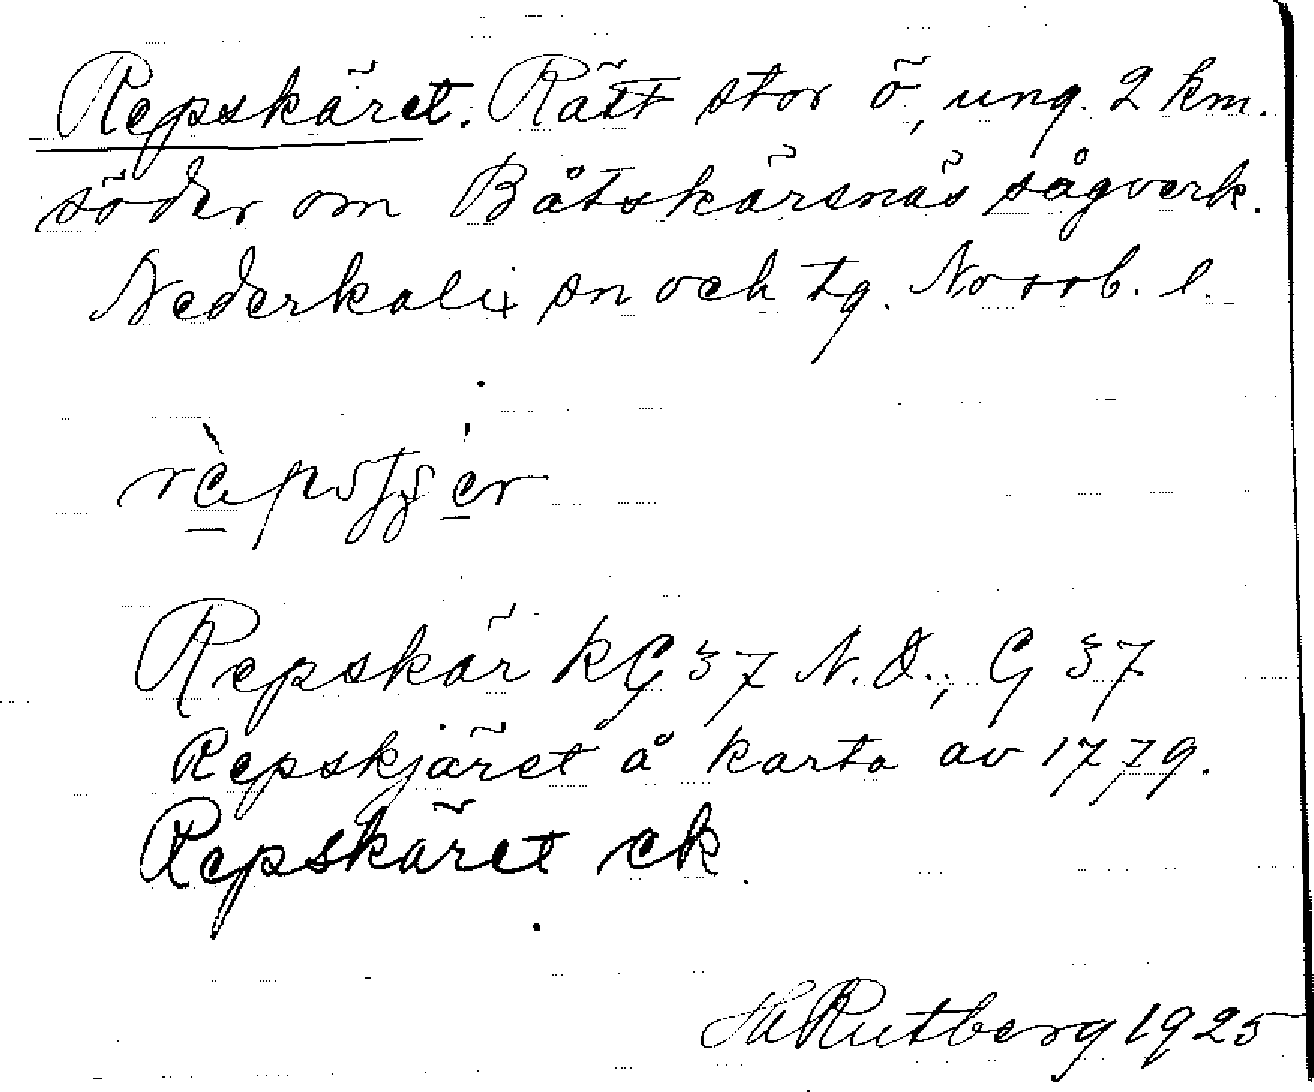 Repskäret. Rätt stor ö, ung. 2 km.
söder om Båtskärsnäs sågverk.
Nederkalix sn och tg. Norrb. l.
Repskär kG 37 N.O., G 37
Repskjäret å karta av 1779.
Repskäret ek
HRutberg 1925